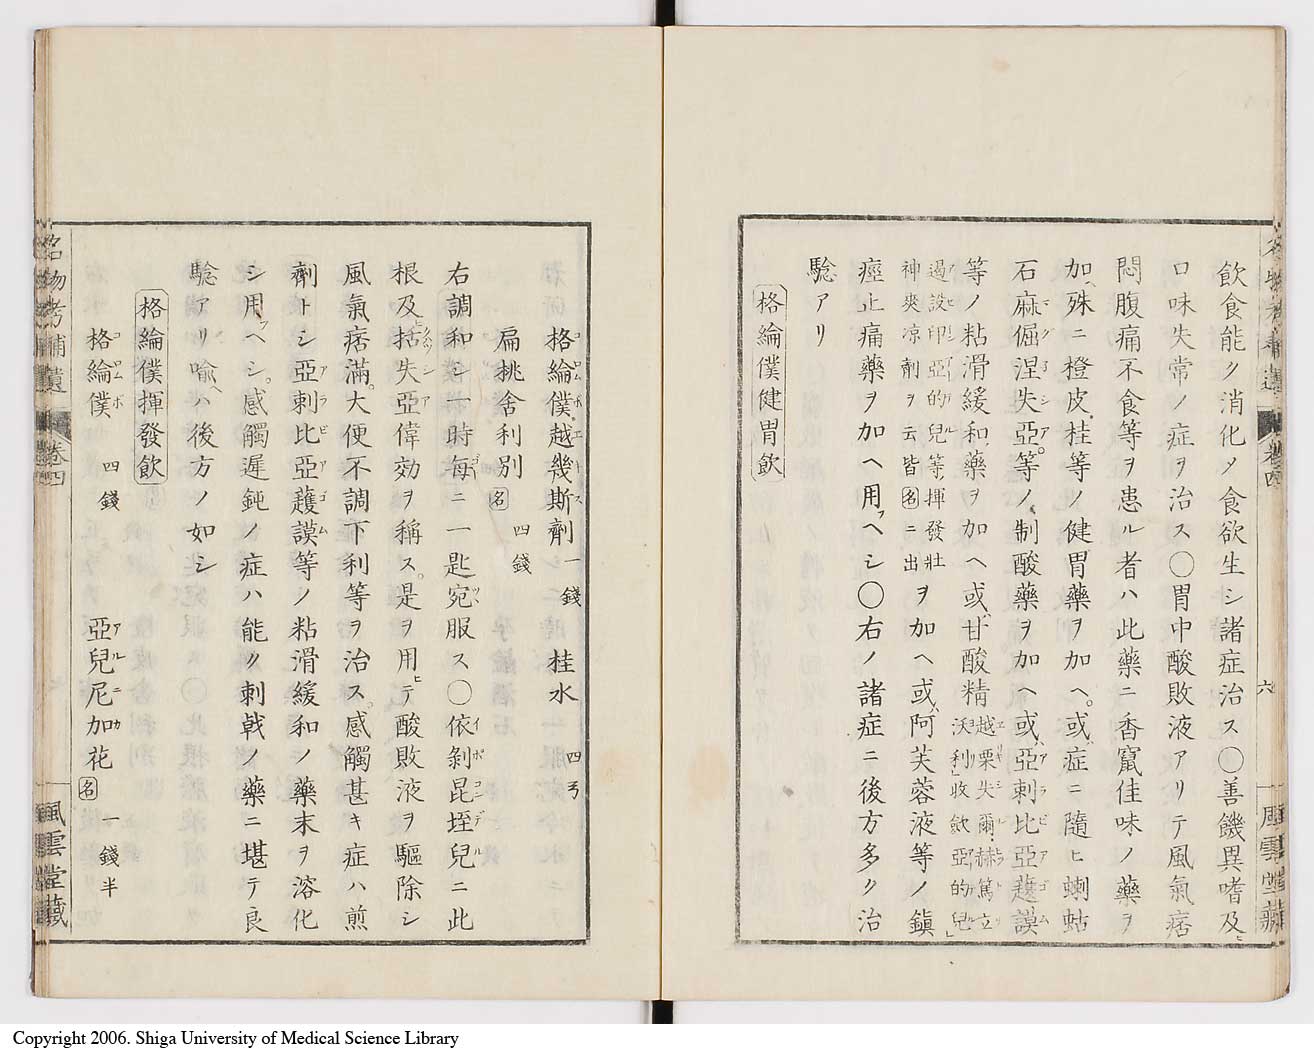 飲食能ク消化メ食欲生シ諸症治ス〇善饑異嗜及ヒ
口味失常ノ症ヲ治ス〇胃中酸敗液アリテ風氣痞
悶腹痛不食等ヲ患ル者ハ此藥ニ香竄佳味ノ藥ヲ
加ヘ殊ニ橙皮桂等ノ健胃藥ヲ加ヘ。或ハ症ニ隨ヒ蜊蛄
石麻倔涅失亞等ノ制酸藥ヲ加ヘ或ハ亞刺比亞護謨
等ノ粘滑緩和藥ヲ加ヘ或ハ甘酸精越栗失爾赫篤立
沃利収歛亞的兒
過泼印亞的兒等揮發壯
神爽凉劑ヲ云皆名ニ出ヲ加ヘ或ハ阿芙蓉液等ノ鎭
痙止痛藥ヲ加ヘ用フヘシ〇右ノ諸症ニ後方多ク治
驗アリ
格綸僕健胃飲
名物考補遺 卷四 六 風雲堂藏
格綸僕越幾斯劑 一錢 桂水 四弓
扁挑舍利別 名 四錢
右調和シ一時每ニ一匙宛服ス〇依剝昆垤兒ニ此
根及ヒ括失亞偉効ヲ稱ス。是ヲ用ヒテ酸敗液ヲ驅除シ
風氣痞滿。大便不調下利等ヲ治ス。感觸甚キ症ハ煎
劑トシ亞刺比亞護謨等ノ粘滑緩和ノ藥末ヲ溶化
シ用フヘシ。感觸遲鈍ノ症ハ能ク刺戟ノ藥ニ堪テ良
驗アリ喩ヘハ後方ノ如シ
格綸僕揮發飲
格綸僕 四錢 亞兒尼加花 名 一錢半
名物考補遺 卷四 風雲堂藏
Copyright 2006. Shiga University of Medical Science Library